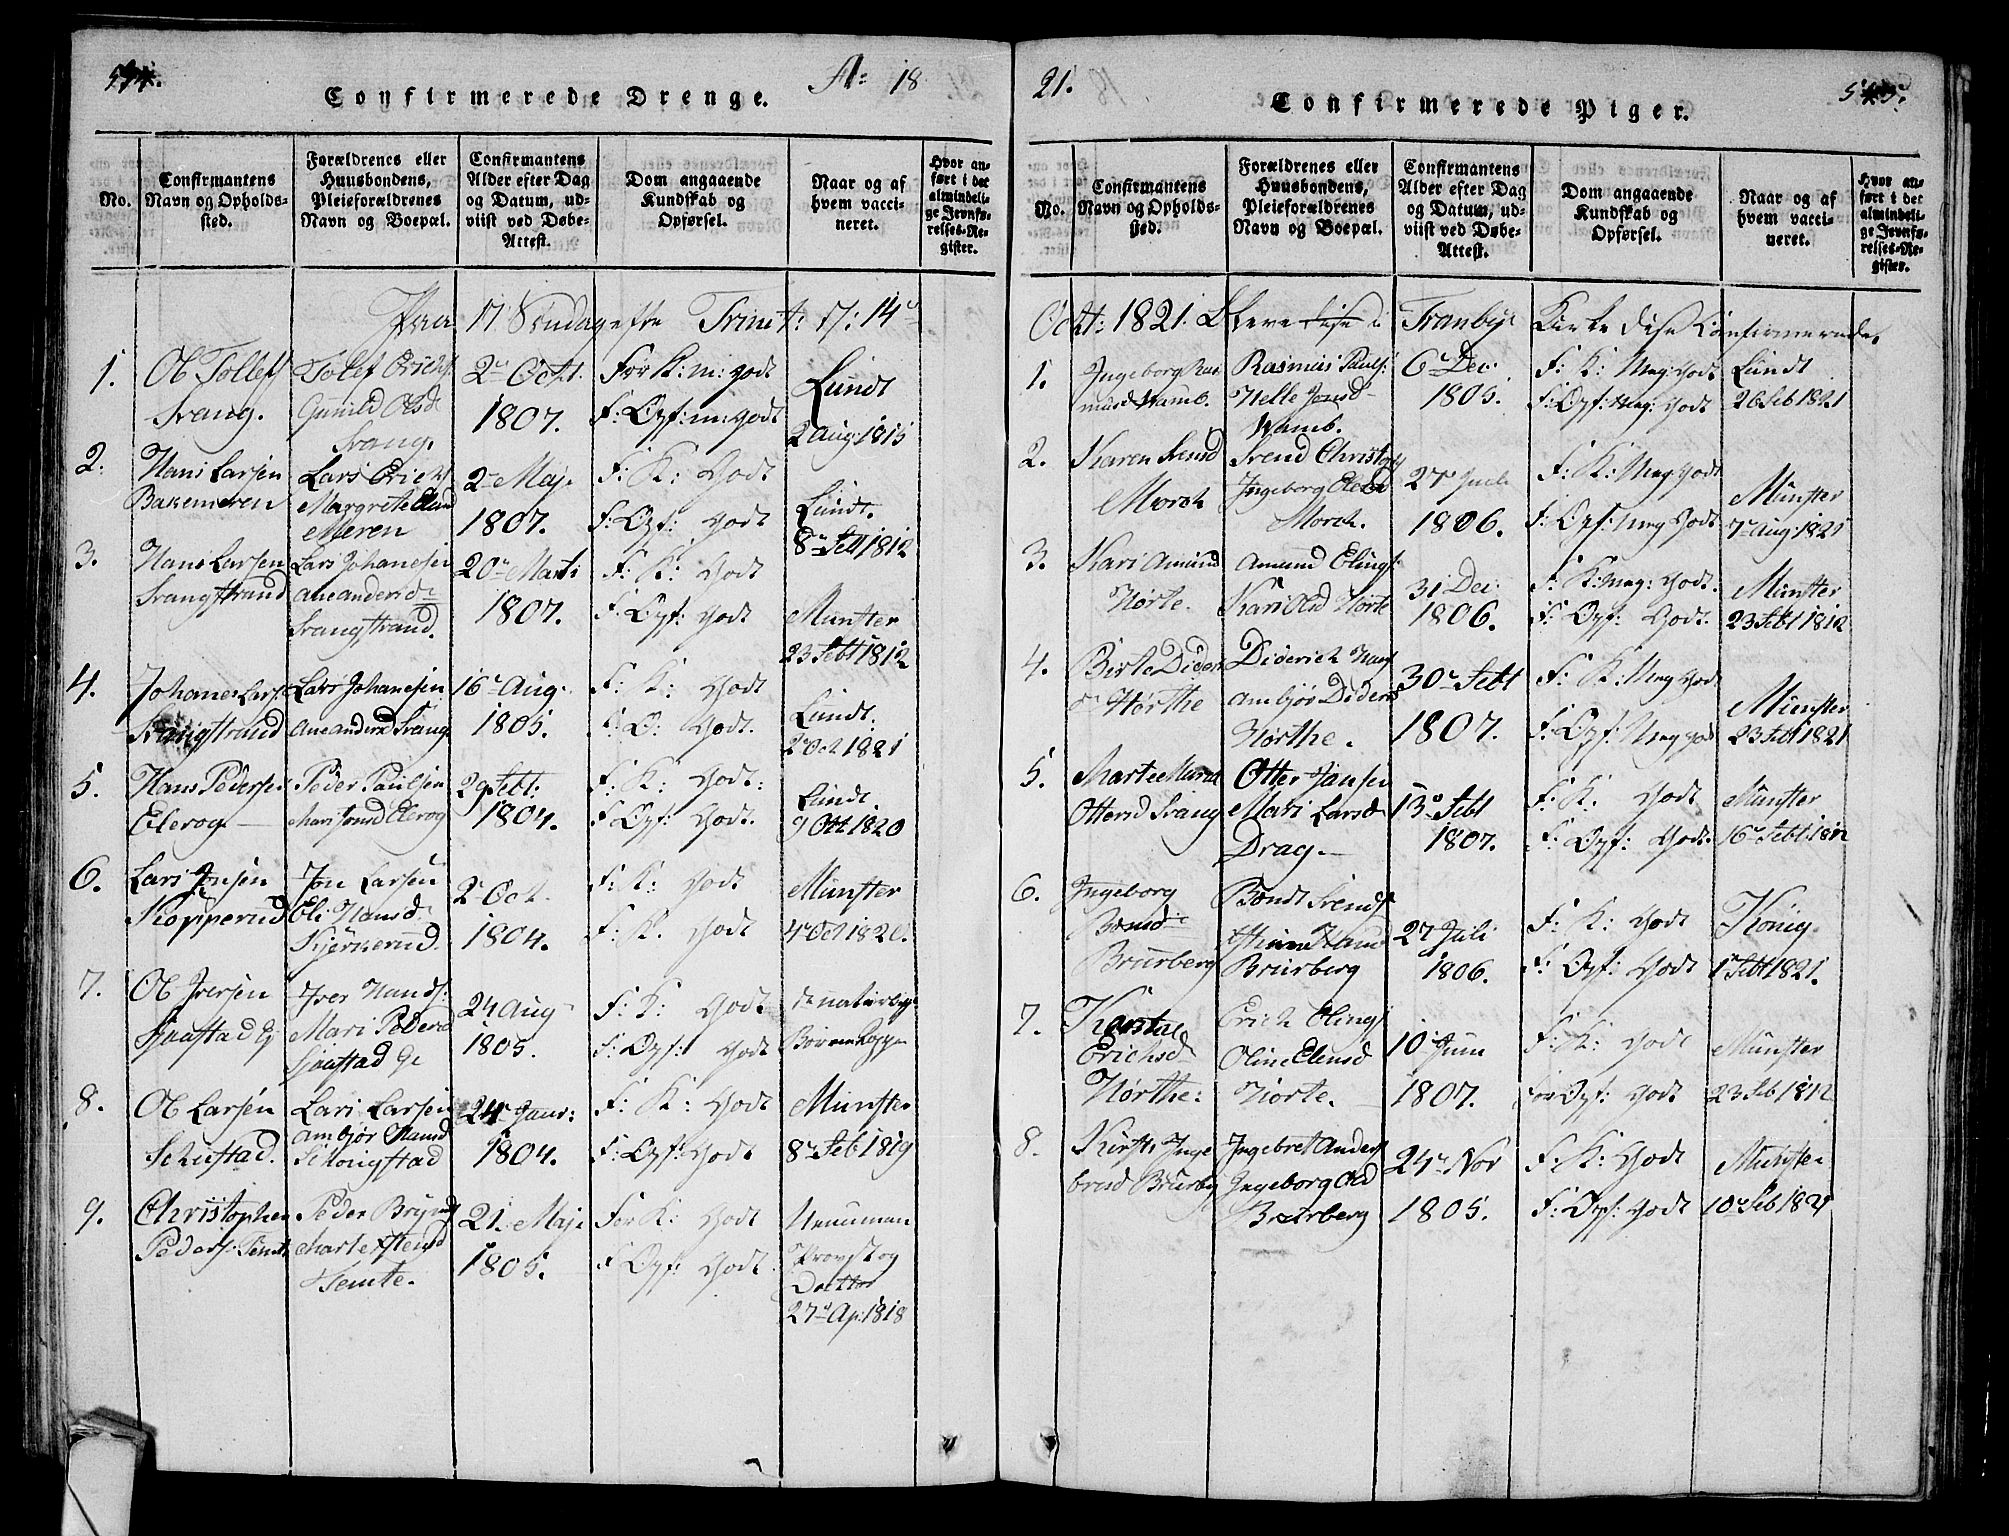 Ao 18
Confirmerede Drenge.
No.
Confirmantens Navn og Opholdssted.
Forældrenes eller Huusbondens, Pleieforældrenes Navn og Boepæl.
Confirmantens Alder efter Dag og Datum, udviist ved Døbe-Attest.
Dom angaaende Kundskab og Opførsel.
Naar og af hvem vaccineret.
Hvor anført i det almindelige Jevnførelses-Register.
17 Søndag efter Trinit: D: 14de
1.
Ole Tollefs
Svang.
Tolef Erichs
Gunild Olsd
Svang.
2den Octr.
1807.
For K: m: godt
F: Opf: m: godt
Lundt
2 Aug: 1815
2.
Hans Larsen
Bakemeren
Lars Erichs
Margrethe
Meren
2den Maj.
1807.
F: K: Godt
F: Opf: Godt
Lundt.
8de Sebt 1812
3.
Hans Larsen
Svangstrand
Lars Johanesen
Ane Andersd
Svangstrand.
20de Marti
1807.
F: K: Godt
F: Opf: Godt
Münster
23 Sebt 1812
4.
Johanes Lars
Svangstrand
Lars Johanesen
Ane Andersd Svang
16de Aug.
1805.
F: K: Godt
F: O: Godt.
Lundt.
2 Oct 1821
5.
Hans Pedersen
Elerog
Peder Paulsen
Mari Jensd Elerog
29 Sebt:
1804.
F: K: Godt:
F: Opf: Godt.
Lundt.
9 Oct 1820
6.
Lars Jonsen
Kopperud
Jon Larsen
Eli Hansd.
Kjernerud.
2de Oct.
1804.
F: K: Godt
F: K. Godt
Münster
4de Oct 1820.
7.
Ole Iversen
Sjaastad Ej
Iver Hans:
Mari Pedersd
Sjaastad Ge
24 Aug
1805.
F: K: Godt
F: Opf: Godt
de naturlige
8.
Ole Larsen
Schustad.
Lars Larsen
Ambjør Hansd
24de Janr:
1804.
F: K: Godt
F: Opf: Godt
Münster
8de Feb 1819
9.
Christopher
Peders:
Peder
Marte Stensd
Temte.
21. Maji
1805.
For K: Godt
F: Opf: Godt.
Neuman
Provst og
Docttor
27de Ap: 1818
21.
Confirmerede Piger.
No.
Confirmantens Navn og Opholdssted.
Forældrenes eller Huusbondens, Pleieforældrenes Navn og Boepæl.
Confirmantens Alder efter Dag og Datum, udviist ved Døbe-Attest.
Dom angaaende Kundskab og Opførsel.
Naar og af hvem vaccineret.
Hvor anført i det almindelige Jevnførelses-Register.
Octr: 1821. Bleve disse i Tranbye Kirke disse Confirmerede.
1.
Ingeborg Ras
musd Wamb.
Rasmus Pauls:
Helle Jensd
Wamb.
6de Dec:
1805.
F: K: Meg: Godt
F: Opf: Meg: Godt
Lundt
26 Feb 1821
2.
Karen Svensd
Morch
Svend Christoph
Ingeborg
Morch.
27de
1806.
F: K: Meg Godt
F: Opf: Meg Godt
Münster
7de Aug: 1821
3.
Kari Amund
Hørte.
Amund Elings
Kari Olsd Hørte
31 Dec:
1806.
F: K: Meg: Godt.
F: Opf: Godt:
Münster
23 Sebt 1812
4.
Birte Diderc
Hørthe
Diderich Hans
Ambjør Diders
Hørthe.
30de Sebt
1807.
F: K: Meg God
F: Opf: Meg godt
Münster
23 Sebt 1821
5.
Marte Maria
Ottersd Svang
Otter Jansen
Mari Larsd
Drag.
13de Sebt
1807.
F: K: Godt
F: Opf: Godt.
Münster
16de Sebt: 1812
6.
Ingeborg
Brurberg
Svends
Brurberg
27 Juli
1806.
F: K: Godt
F: Opf: Godt
König
1 Sebt 1821.
7.
Erichsd
Hørthe:
Erich Elings
Oline Elensd
Hørte.
10de Juni
1807.
F: K: Godt
For Opf: Godt
Münster
23 Feb 1812
8.
Kirsti Inge
bresd Brurby
Ingebret Anders
Ingeborg Olsd
Brurberg
24de Nov
1805.
F: K: Godt
F: Opf: Godt
Münster
10de Feb 1821